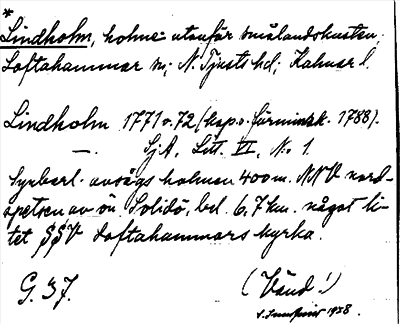 *
Lindholm, holme utanför smålandskusten,
Loftahammar sn; N. Tjusts hd; Kalmar l.
Lindholm 1771 o. 72 (kop. o. förminsk. 1788).
—. SjA, Litt. VI, N:o 1.
Synberl. avsågs holmen 400 m. NNV nord-
spetsen av ön Solidö, bel. 6,7 km. något li-
tet SSV Loftahammars kyrka.
G. 37.
(Vänd!)
1938.